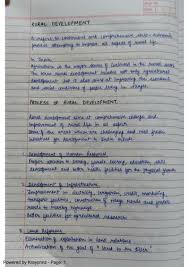 RURAL DEVELOPMENT
It refers to continuous and comprehensive socio-economic
process attempting to improve all aspects of rural life.
In India,
Agriculture is the major source of livelihood in the rural areas.
The term rural development includes not only agricultural
development but it also aims at improving the standard
and social conditions of people living in villages.
PROCESS OF RURAL DEVELOPMENT
Rural development aims at comprehensive changes and
improvement of rural life in all aspects.
Some of the areas which are challenging and need fresh
initiatives for development in India include
1. Development of Human Resource
Proper attention to literacy, female literacy, education, skill
development and better health facilities for the physical growth
2. Development of Infrastructure
Improvement in electricity, irrigation, credit, marketing,
transport facilities, construction of village roads and feeder
roads to nearby highways
Better facilities for agricultural research
3. Land Reforms
Elimination of exploitation in land relations
Actualisation of the goal of "land to the tiller"
Powered by Kreyonns - Page: 1